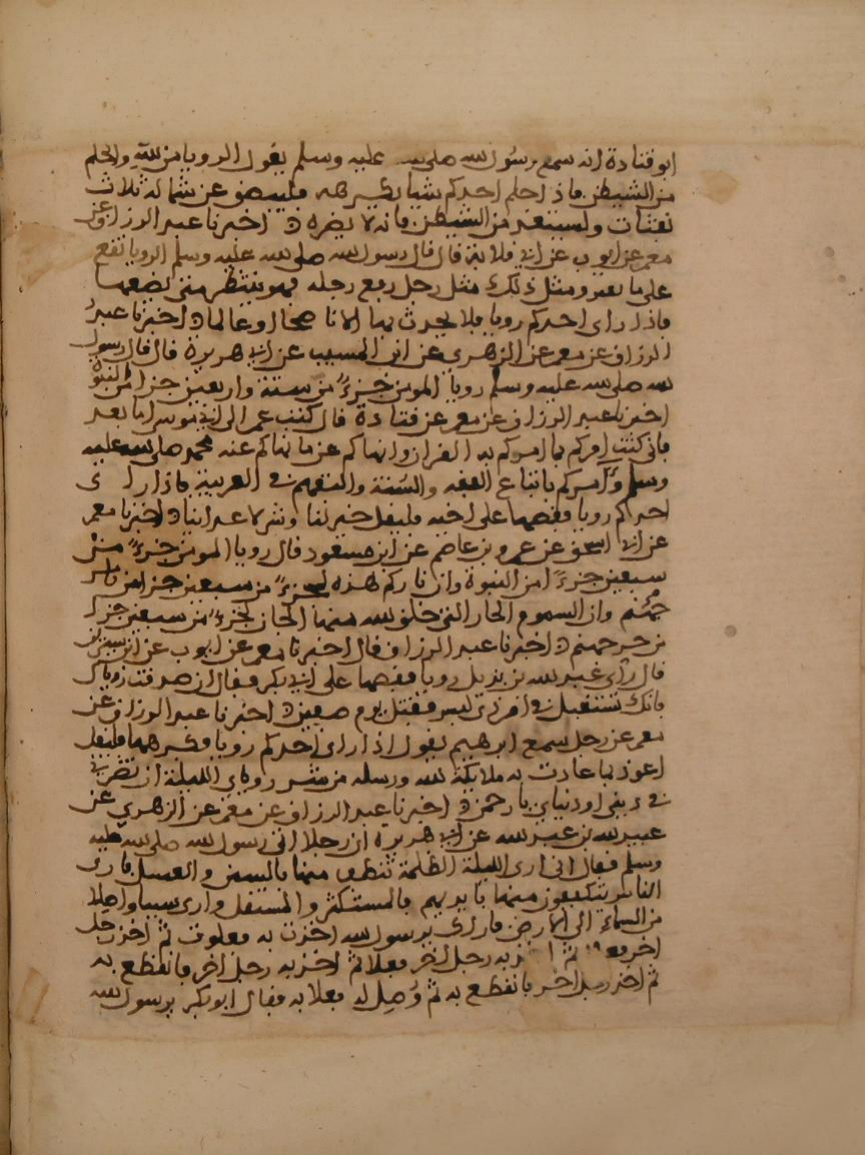 ابو قتادة انه سمع رسول الله صلى الله عليه وسلم يقول الرويا من الله والحلم
من الشيطن فاذا حلم احدكم شيا يكرهه فليبصق عن شماله ثلاث
نفثات وليستعذ من الشيطن فانه لا يضره اخبرنا عبد الرزاق عن
معمر عن ايوب عن ابي قلابة قال قال رسول الله صلى الله عليه وسلم الرويا تقع
على ما تعبر ومثل ذلك مثل رجل رفع رجله فهو ينتظر متى يضعها
فاذا راى احدكم رويا فلا يحدث بها الا ناصحا او عالما اخبرنا عبد
الرزاق عن معمر عن الزهري عن ابن المسيب عن ابي هريرة قال قال رسول
الله صلى الله عليه وسلم رويا المومن جزء من ستة واربعين جزا من النبوة
اخبرنا عبد الرزاق عن معمر عن قتادة قال كتب عمر الى ابي موسى اما بعد
فاني كنت امركم بما امركم به القران وانهاكم عن ما نهاكم عنه محمد صلى الله عليه
وسلم وامركم باتباع الفقه والسنة والتفهم في العربية فاذا راى
احدكم رويا فقصها على اخيه فليقل خير لنا وشر لاعدائنا اخبرنا معمر
عن ابي اسحق عن عمرو بن عاصم عن ابن مسعود قال رويا المومن جزء من
سبعين جزءا من النبوة وان ناركم هذه لجزء من سبعين جزا من نار
جهنم وان السموم الحار التي خلق الله منها الجان لجزء من سبعين جزا
من حر جهنم اخبرنا عبد الرزاق قال اخبرنا معمر عن ايوب عن ابن سيرين
قال راى عبد الله بن بديل رويا فقصها على ابي بكر فقال ان صدقت روياك
فانك ستقتل في امر ذي لبس فقتل يوم صفين اخبرنا عبد الرزاق عن
معمر عن رجل سمع ابرهيم يقول اذا راى احدكم رويا فكرهها فليقل
اعوذ بما عاذت به ملايكة الله ورسله من شر روياي الليلة ان تضرني
في ديني او دنياي يا رحمن اخبرنا عبد الرزاق عن معمر عن الزهري عن
عبيد الله بن عبد الله عن ابي هريرة ان رجلا اتى رسول الله صلى الله عليه
وسلم فقال اني ارى الليلة الظلمة تنطف منها بالسمن والعسل فارى
الناس يتكففون منها بايديهم فالمستكثر والمستقل وارى سببا واصلا
من السماء الى الارض فاراك يرسول الله اخذت به فعلوت ثم اخذ رجل
اخر به رجل اخر فعلا ثم اخذ به رجل اخر فانقطع به
ثم اخذ رجل اخر فانقطع به ثم وصل له فعلا به فقال ابو بكر يرسول الله